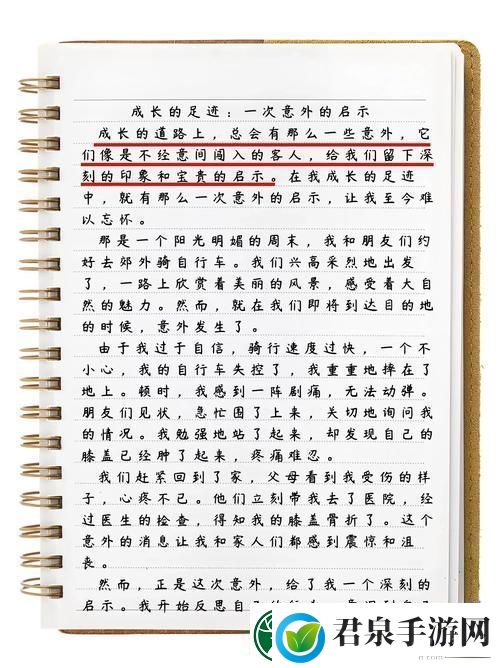 成长的足迹：一次意外的启示
成长的道路上，总会有那么一些意外，它
们像是不经意间闯入的客人，给我们留下深
刻的印象和宝贵的启示。在我成长的足迹
中，就有那么一次意外的启示，让我至今难
以忘怀。
那是一个阳光明媚的周末，我和朋友们约
好去郊外骑自行车。我们兴高采烈地出发
了，一路上欣赏着美丽的风景，感受着大自
然的魅力。然而，就在我们即将到达目的地
的时候，意外发生了。
由于我过于自信，骑行速度过快，一个不
小心，我的自行车失控了，我重重地摔在了
地上。顿时，我感到一阵剧痛，无法动弹。
朋友们见状，急忙围了上来，关切地询问我
的情况。我勉强地站了起来，却发现自己的
膝盖已经肿了起来，疼痛难忍。
我们赶紧回到了家，父母看到我受伤的样
子，心疼不已。他们立刻带我去了医院，经
过医生的检查，得知我的膝盖骨折了。这个
意外的消息让我和家人们都感到震惊和沮
丧。
然而，正是这次意外，给了我一个深刻的
启示。我开始反思自
君泉手游网